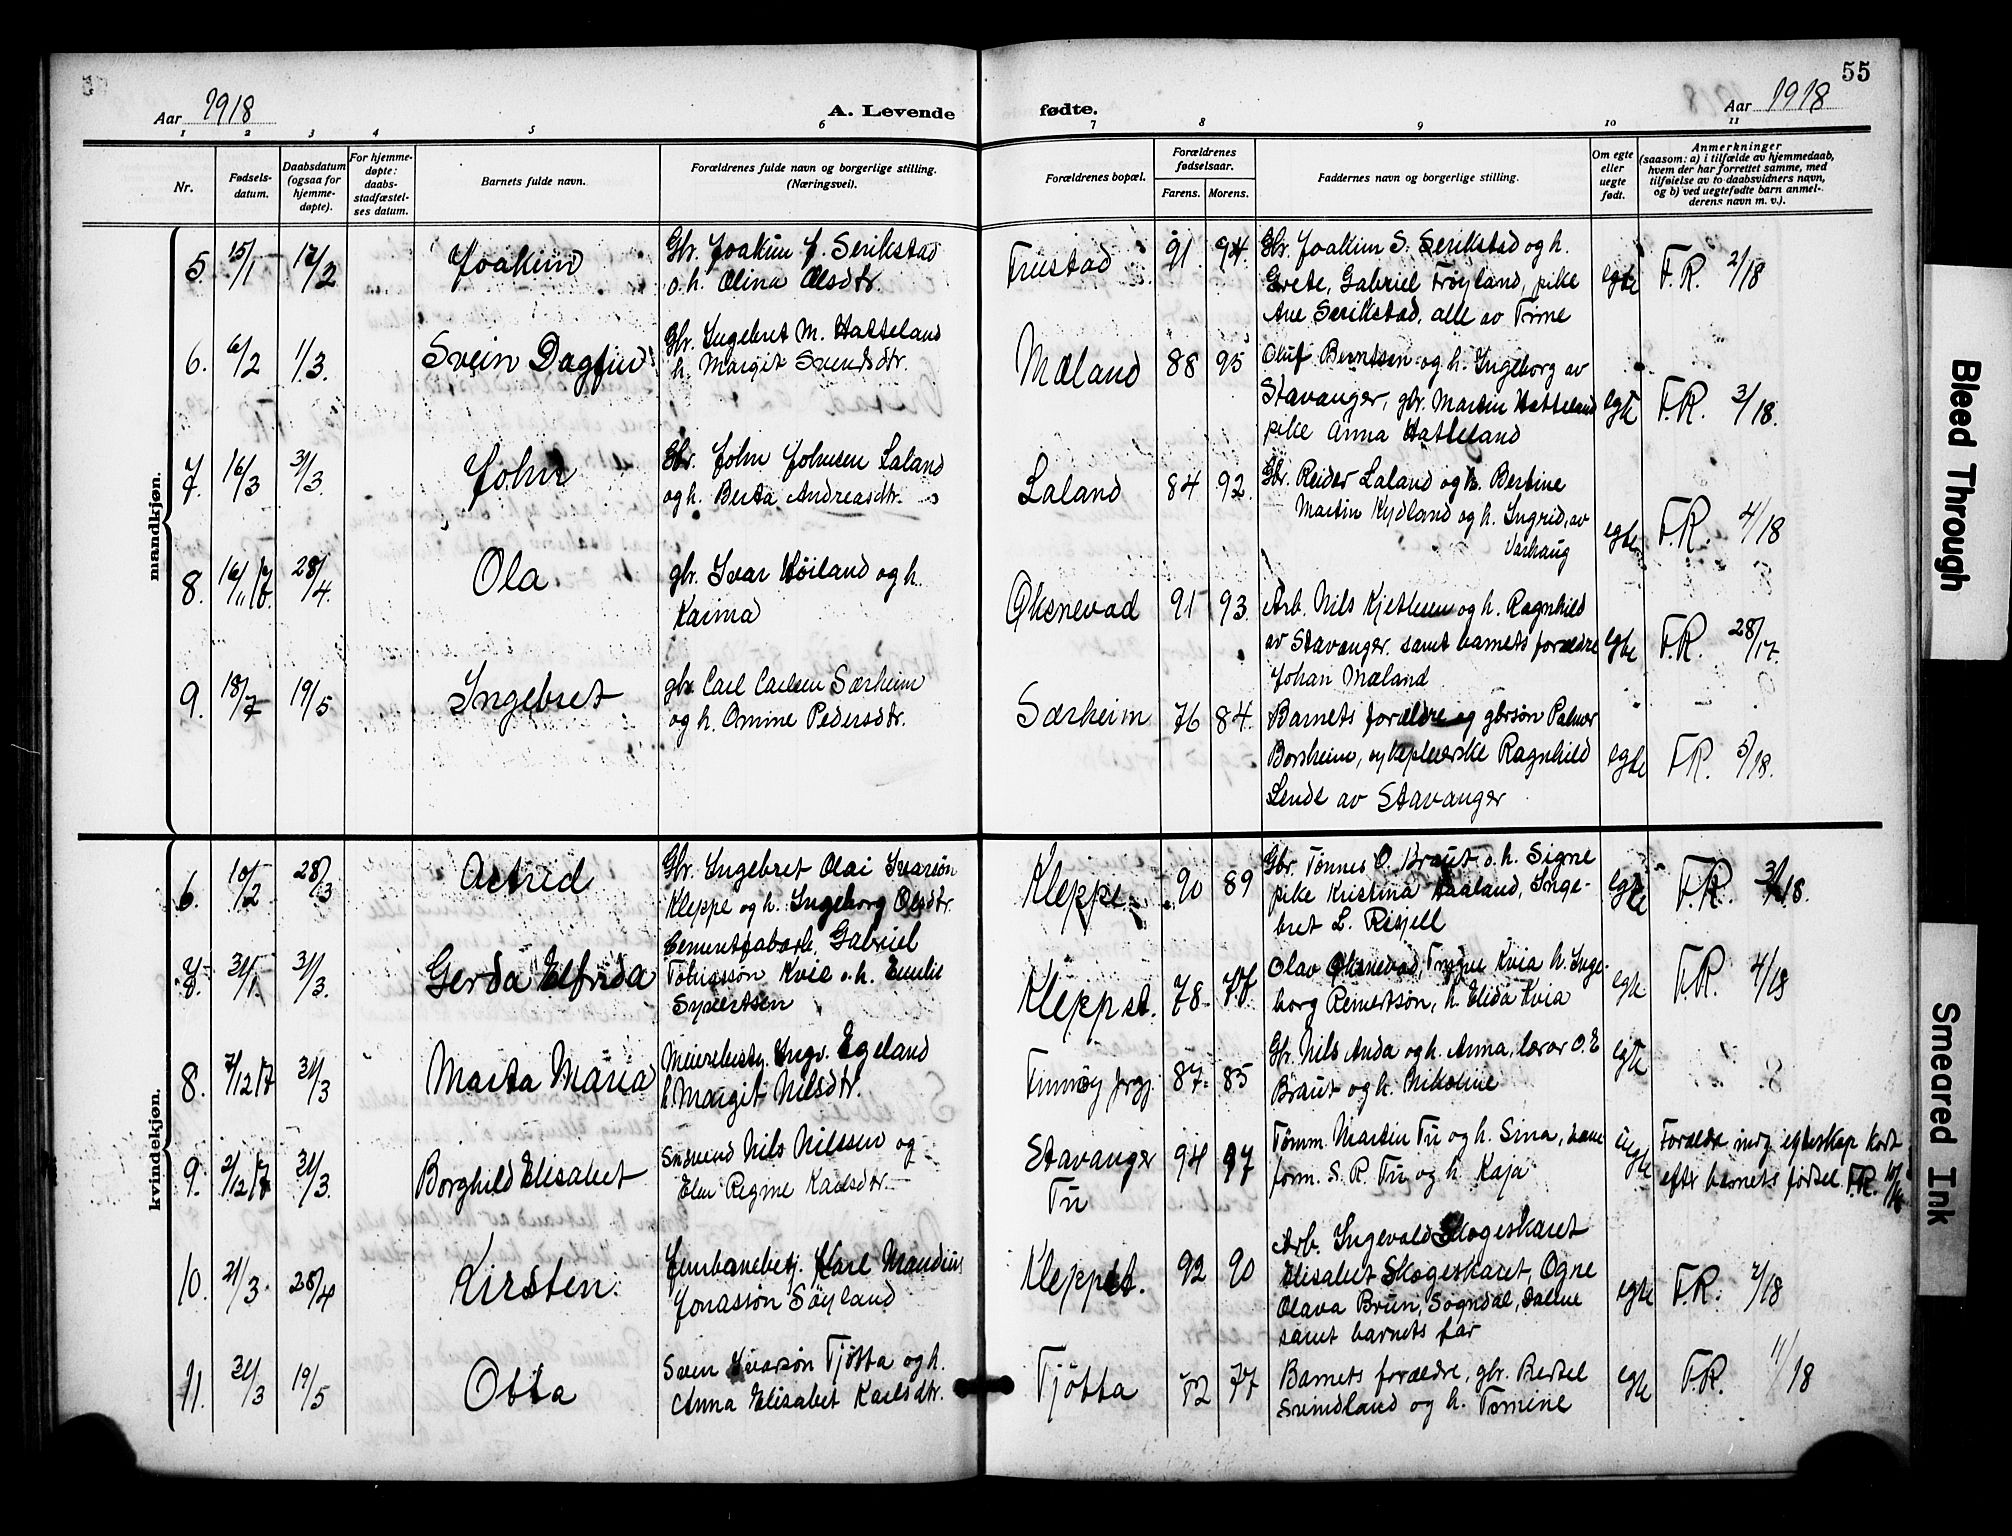 55
Aar 1918
A. Levende
fødte.
Aar 1918
1 2 3 4 5 6 7 8 9 10 11
Nr.
Fødsels-
datum.
Daabsdatum
(ogsaa for
hjemme-
døpte).
For hjemme-
døpte:
daabs-
stadfæstel-
ses datum.
Barnets fulde navn.
Forældrenes fulde navn og borgerlige stilling.
(Næringsvei).
Forældrenes bopæl.
Forældrenes
fødselsaar.
Farens. Morens.
Faddernes navn og borgerlige stilling.
Om egte
eller
uegte
født.
Anmerkninger
(saasom: a) i tilfælde av hjemmedaab,
hvem der har forrettet samme, med
tilføielse av to daabsvidners navn,
og b) ved uegtefødte barn anmel-
derens navn m. v.).
mandkjøn.
5. 15/1 17/2 Joakim
Gbr. Joakim J. Serikstad
o.h. Olina Olsdtr
Frustad 91 94.
Gbr. Joakim S. Serikstad og h.
Grete, Gabriel Frøyland, pike
Ane Serikstad, alle av Time
egte F.R. 2/18
6. 6/2 1/3. Svein Dagfin
Gbr. Ingebret M. Hatteland
h. Margit Svendsdtr.
Mæland 88 95
Oluf Berntsen og h. Ingeborg av
Stavanger, gbr. Martin Hatteland
pike Anna Hatteland
egte F.R. 3/18.
7. 16/3 31/3. John
Gbr. John Johnsen Laland
og h. Berta Andreasdtr.
Laland 84 92.
Gbr. Reidar Laland og h. Bertine
Martin Kydland og h. Ingrid, av
Varhaug
egte F.R. 4/18
8. 28/4. Ola
gbr. Ivar Høiland og h.
Karina
Øksnevad 91 93.
Arb. Nils Kjetleen og h. Ragnhild
av Stavanger. samt barnets forældre
Johan Mæland
egte F.R. 28/17.
9. 18/7 19/5 Ingebret
gbr Carl Carlsen Særheim
og h. Omine Pedersdtr.
Særheim 76 84.
Barnets forældre og gbrsøn Palmer
Borsheim, sykepleierske Ragnhild
Lende av Stavanger
egte F.R. 5/18.
kvindekjøn.
6. 10/2 28/3 Astrid
Gbr. Ingebret Olai Ivarsøn
Kleppe og h. Ingeborg Olsdtr.
Kleppe 90 89
Gbr. Tønnes O. Braut o.h. Signe
pike Kristina Haaland, Inge-
bret L. Risjell
egte F.R. 3/18.
7. 31/1. 31/3. Gerda Elfrida
Cementfabarb. Gabriel
Tobiassøn Kvie o.h. Emilie
Syvertsen
Klepp st. 78. 77.
Olav Øksnevad, Trygve Kvia h. Inge-
borg Reinertsøn, h. Elida Kvia
egte F.R. 4/18
8. 7/12 17 31/3 Marta Maria
Meieribesty. Ingv. Egeland
h Margit Nilsdtr.
87. 85
Gbr. Nils Anda og h. Anna, lærer O. E
Braut og h. Nikoline
egte
9. 2/12 17 31/3. Borghild Elisabet
Snsvend Nils Nilssen og
Elen Regine Karlsdtr.
Stavanger
Tu
94 97
Tømm. Martin Tu og h. Sina,
form. S. R. Tu og h. Kaja
uegte
Forældr. indg. egteskap kort
efter barnets fødsel. F.R.
10. 21/3. 28/4 Kirsten.
Jernbanebetj. Karl Maudius
Jonassøn Søyland
Klepp st. 92 90
Arb. Ingevald Skogeskaret
Elisabet Skogeskaret, Ogne
Olava Brun, Sogndal, Dalene
samt barnets far
egte F.R. 7/18
11. 31/3 19/5 Otta
Sven Ivarsøn Tjøtta og h.
Anna Elisabet Karlsdtr.
Tjøtta 72 77
Barnets forældre, gbr. Bertel
Svindland og h. Tomine
egte F.R. 11/18
Bleed Through
Smeared Ink